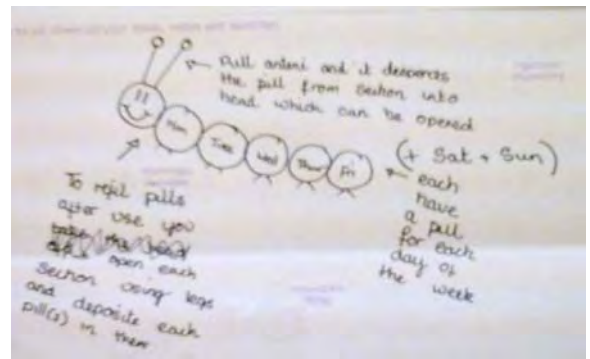 Pull anteni and it desposits
the pill from section into
head which can be opened
Mon
Tues
Wed
Thur
Fri
(+ Sat + Sun)
each
have
a pill
for each
day of
the week
To refil pills
after use you
open each
section using legs
and deposite each
pill(s) in them